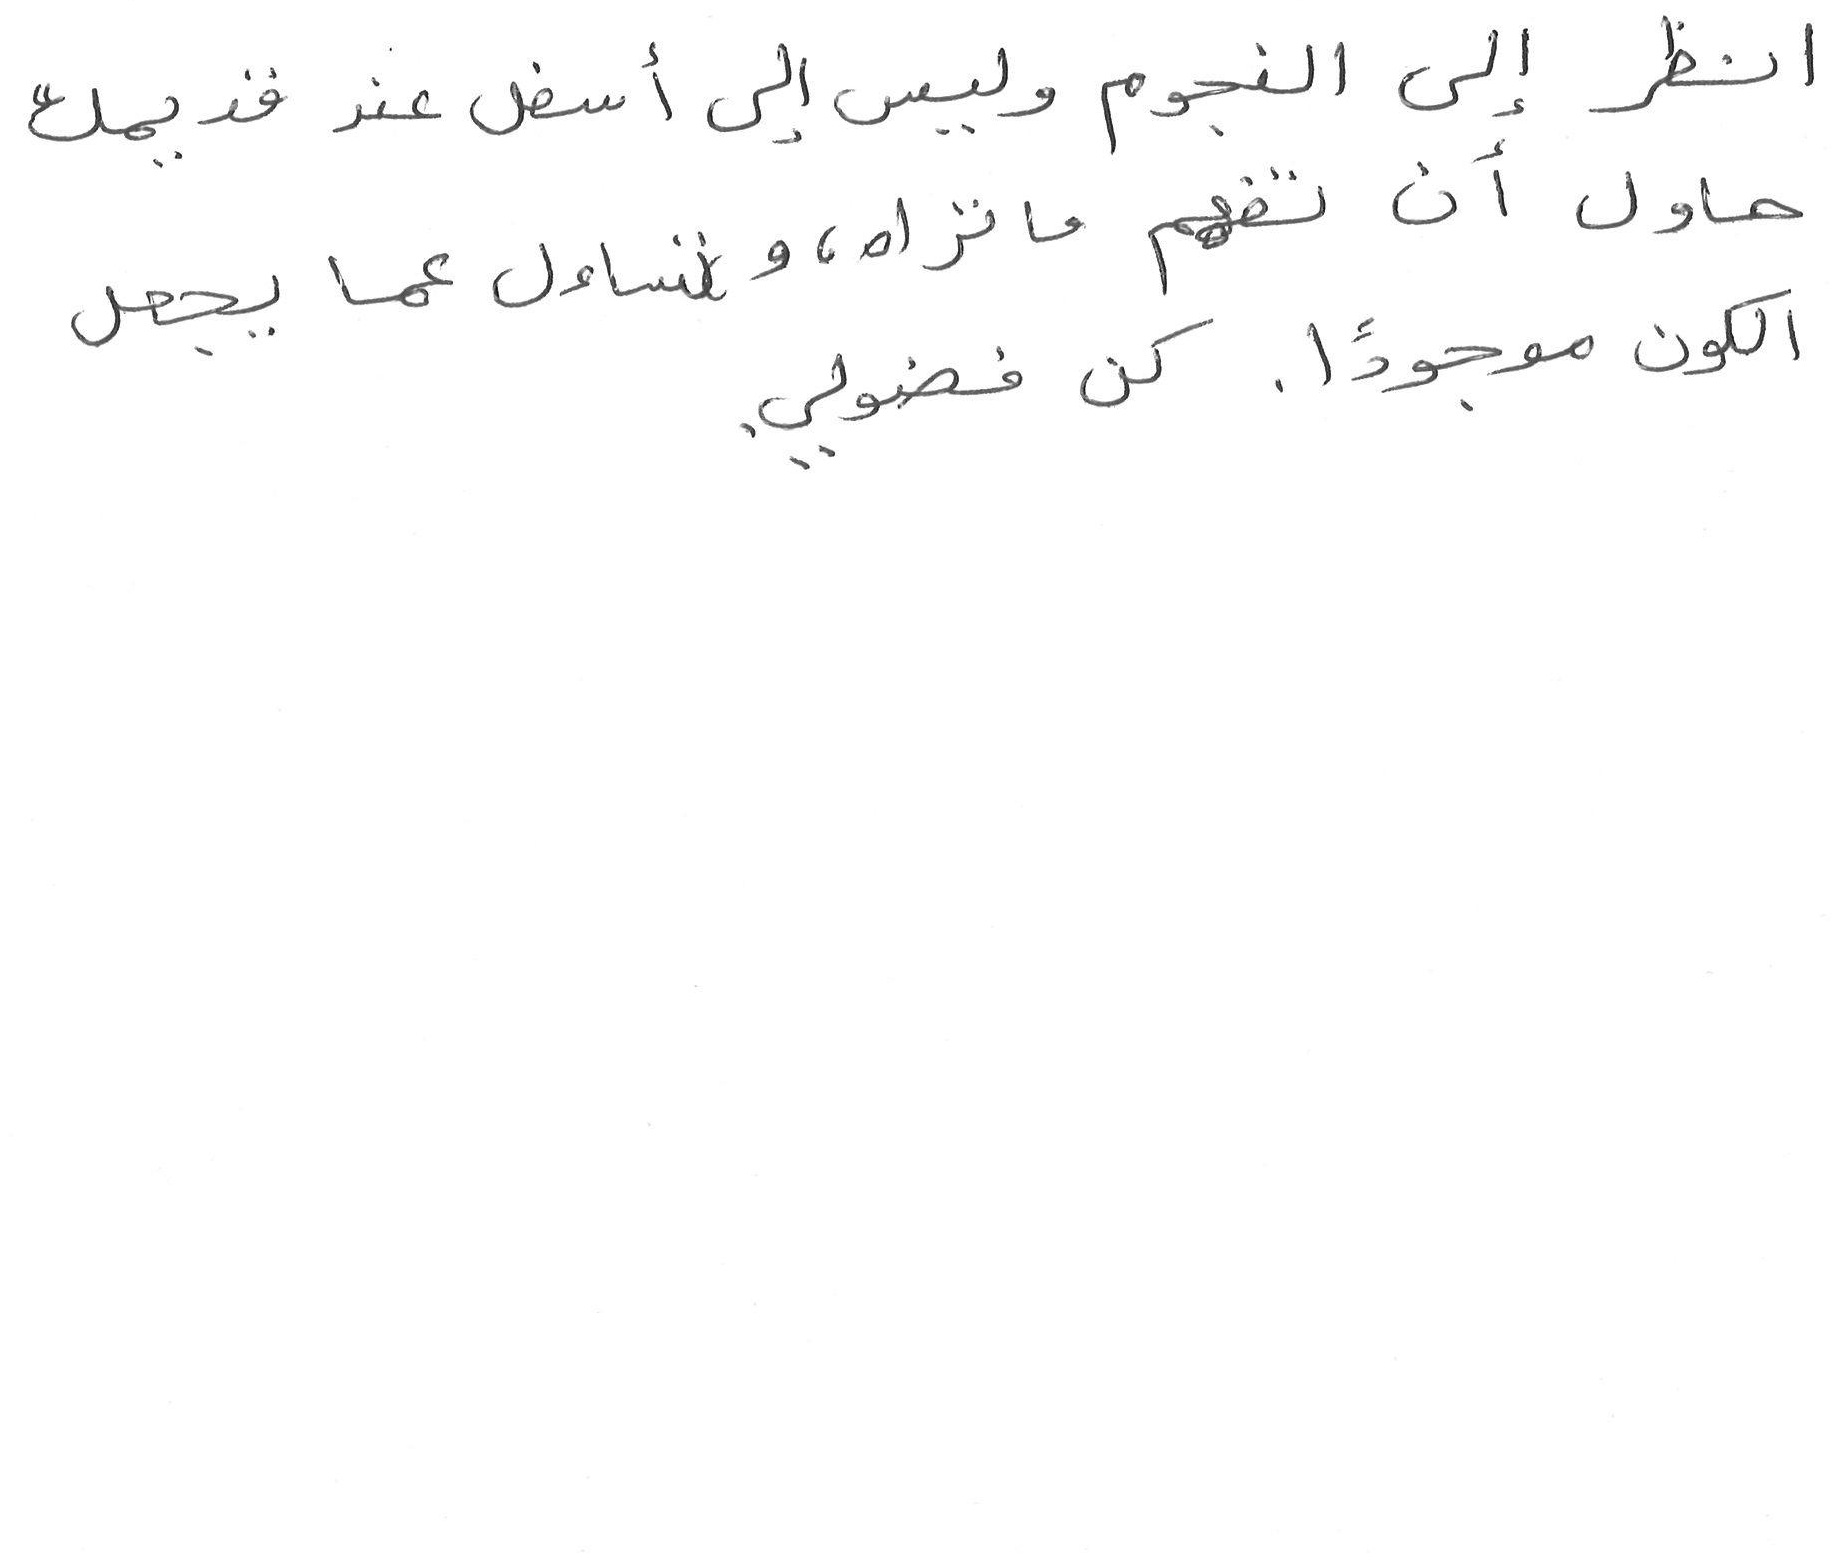 انظر إلى النجوم وليس إلى أسفل عند قديمك
حاول أن تفهم ما تراه، و تتساءل عما يجعل
الكون موجودًا. كن فضولي.